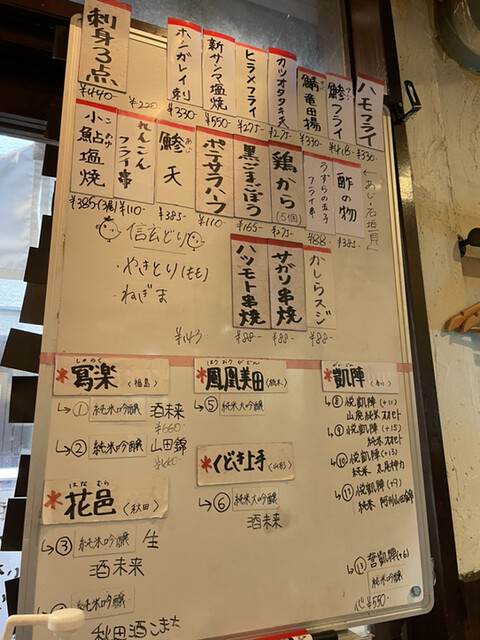 ハモフライ
¥330-
鯵フライ
¥418-
鯖竜田揚
¥330-
カツオタタキ天
¥275-
ヒラメフライ
¥275-
新サンマ塩焼
¥550-
ホシガレイ刺
¥330-
刺身3点
¥440-
¥220
酢の物
←あじ・石垣貝
¥385-
うずらの玉子フライ串
¥88-
鶏から
(5個)
¥275-
黒ごまごぼう
¥165-
ポテサラハーフ
¥110-
あじ
鯵天
¥385-
れんこんフライ串
¥110-
こあゆ
小鮎塩焼
¥385(3尾)
かしらスジ
¥88-
サガリ串焼
¥88-
ハツモト串焼
¥88-
信玄どり
・やきとり(もも)
・ねぎま
¥143
しゃらく
*寫楽〈福島〉
↳①純米吟醸 酒未来
¥660-
↳②純米吟醸 山田錦
はなむら
*花邑〈秋田〉
↳③純米吟醸 生
酒未来
純米吟醸
秋田酒こまち
ほうおうびでん
*鳳凰美田〈栃木〉
↳⑤純米大吟醸
*くどき上手〈山形〉
↳⑥純米大吟醸
酒未来
がいじん
*凱陣〈香川〉
↳⑧悦凱陣(+11)
山廃純米 オオセト
↳⑨悦凱陣(+15)
純米 オオセト
↳⑩悦凱陣(+13)
純米
↳⑪悦凱陣(+9)
純米 阿州山田錦
↳⑬誉凱陣(+6)
純米吟醸
¥550-